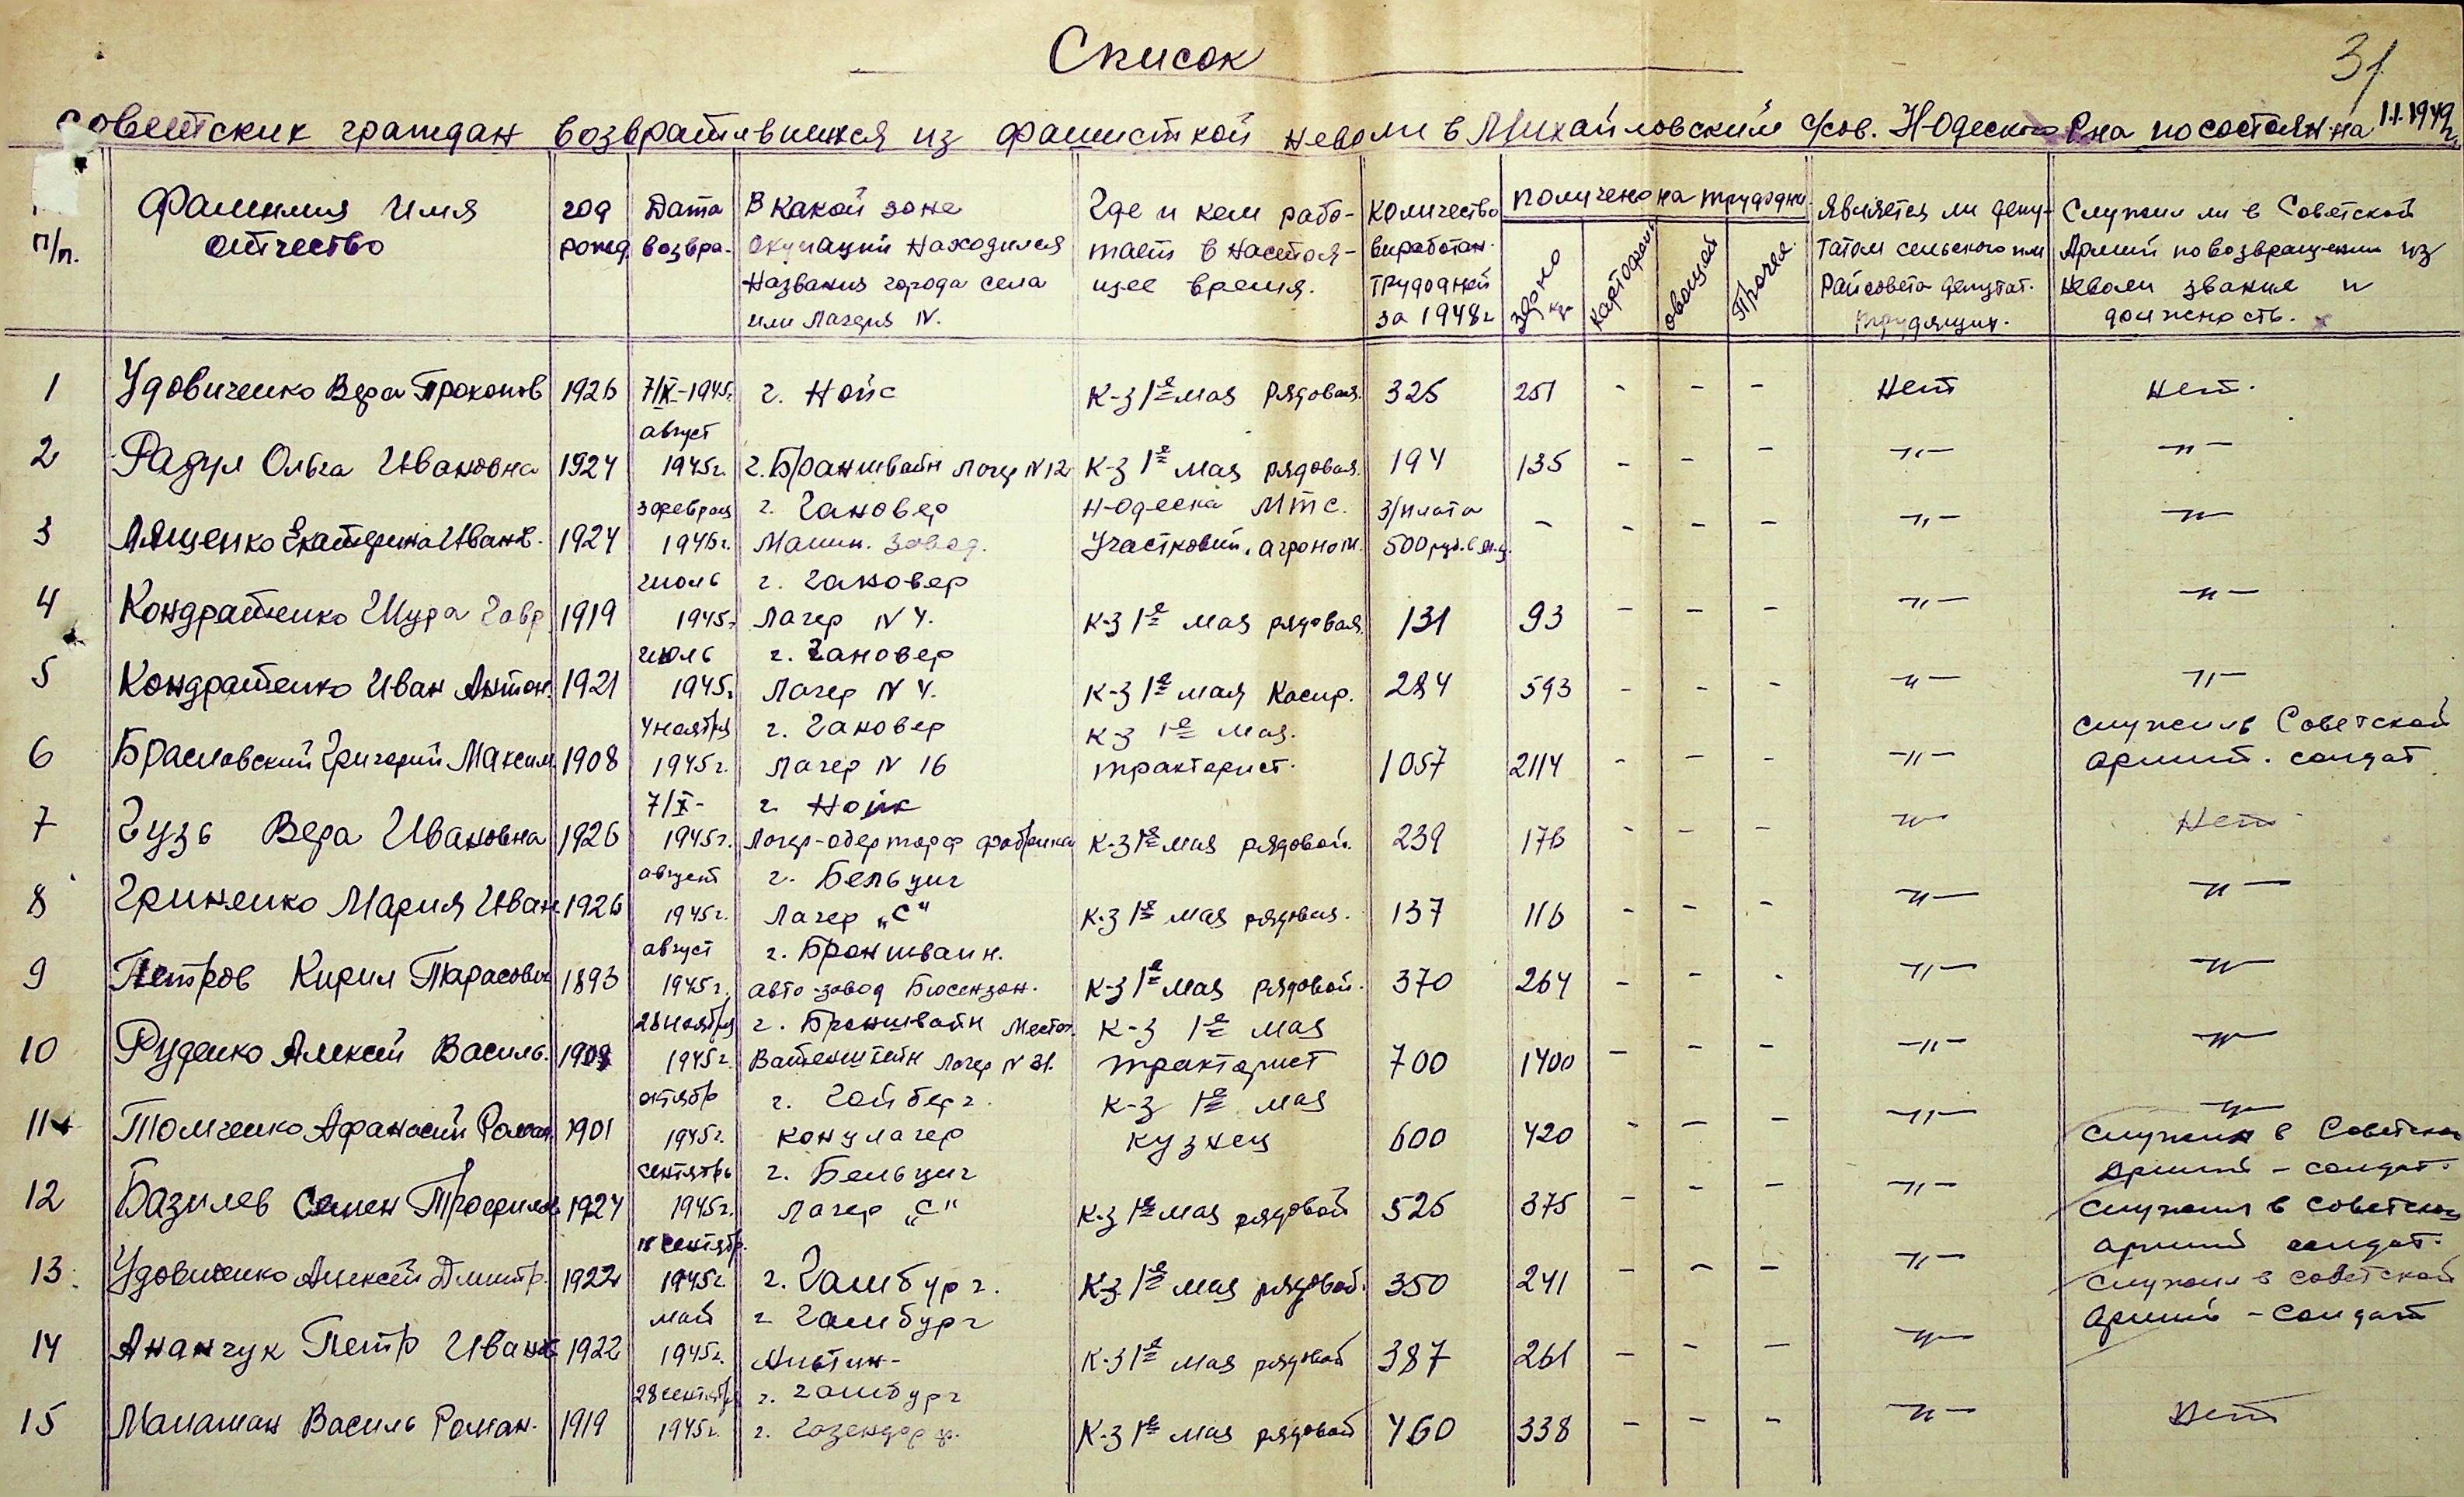 Список
31
советских граждан возвратившихся из фашисткой неволи в Михайловский с/сов. Н-Одеского Р-на по состоян на 1.1.1949г.
п/п.
Фамилия Имя отчество
год рожд
Дата возвра-
В какой зоне окупаций находился Названия города села или лагеря №.
Где и кем рабо- тает в настоя- щее время.
Количество виработан. трудодней за 1948г
получено на трудодни
зерно кг
картофель
овощей
Прочее
Является ли депу- татом сельского или Райсовета депутат. трудящих.
Служил ли в Советской Армий по возвращении из неволи звание и должность.
1 Удовиченко Вера Прокопов 1926 7/IX-1945г. г. Нойс к-з 1е мая рядовая. 325 251 - - - нет нет.
2 Радул Ольга Ивановна 1924 август 1945г. г. Браншвайн лагер №12 к-з 1е мая рядовая. 194 135 - - - -"- -"-
3 Лященко Екатерина Иванв. 1924 3 февраля 1946г. г. Гановер Машин. завод. Н-Одеска МТС. Участковий агроном. З/плата 500 руб. в м-ц. - - - - -"- -"-
4 Кондратенко Шура Гавр 1919 июль 1945г. г. Гановер Лагер №4. к-з 1е мая рядовая. 131 93 - - - -"- -"-
5 Кондратенко Иван Антон. 1921 июль 1945г. г. Гановер Лагер №4. к-з 1е мая Касир. 284 593 - - - -"- -"-
6 Браславский Григорий Максим. 1908 4 ноября 1945г. г. Гановер Лагер №16 к-з 1е мая. тракторист. 1057 2114 - - - -"- служил в Советской армий. солдат
7 Гузь Вера Ивановна 1926 7/X- 1945г. г. Нойк Лагер-одерторф фабрика к-з 1е мая рядовой. 239 176 - - - -"- Нет
8 Гриненко Мария Иван. 1926 август 1945г. г. Бельциг Лагер „С" к-з 1е мая рядовая. 137 116 - - - -"- -"-
9 Петров Кирил Тарасович 1893 август 1945г. г. Броншваин. авто-завод Бюсензон. к-з 1е мая рядовой. 370 264 - - - -"- -"-
10 Руденко Алексей Василь. 1908 28 ноября 1945г. г. Броншвайн Местог. Ватенштейн Лагер №21. к-з 1е мая тракторист 700 1400 - - - -"- -"-
11 Томченко Афанасий Роман. 1901 октябр 1945г. г. Гойберг. концлагер к-з 1е мая кузнец 600 420 - - - -"- -"-
служил в Советской армий - солдат.
12 Базилев Семен Трофимов 1924 сентябрь 1945г. г. Бельциг Лагер „С" к-з 1е мая рядовой 525 375 - - - -"- служил в Советской армий солдат.
13 Удовиченко Алексей Дмитр. 1922 15 сентябр. 1945г. г. Гамбург. к-з 1е мая рядовой. 350 241 - - - -"- служил в советской армий - солдат
14 Ананчук Петр Иванв 1922 май 1945г. г. Гамбург к-з 1е мая рядовой 387 261 - - - -"-
15 Маташан Василь Роман. 1919 28 сентября 1945г. г. Гамбург г. Газендорф. к-з 1е мая рядовой 460 338 - - - -"- Нет